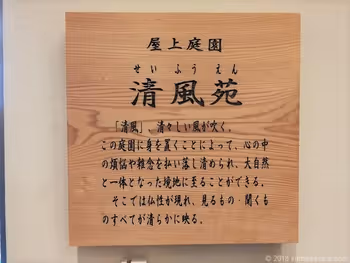 屋上庭園
せいふうえん
清風苑
「清風」、清々しい風が吹く。
この庭園に身を置くことによって、心の中
の煩悩や雑念を払い落し清められ、大自然
と一体となった境地に至ることができる。
そこでは仏性が現れ、見るもの・聞くも
のすべてが清らかに映る。